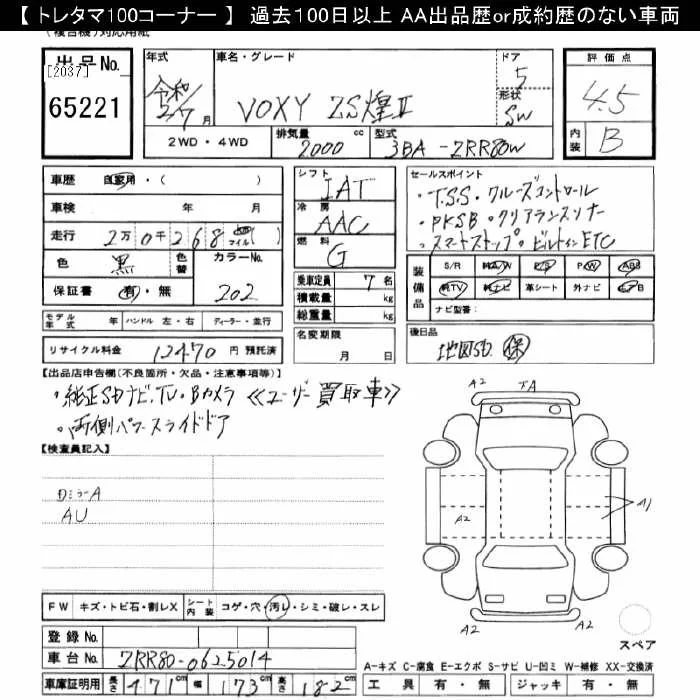 【 トレタマ100コーナー 】 過去100日以上 AA出品歴or成約歴のない車両
(複合機)対応用紙
出品No. [2037] 65221
年式 令和 2/7月
車名・グレード VOXY ZS煌Ⅱ
ドア 5
形状 SW
評価点 4.5
内装 B
2WD・4WD
排気量 2000 cc
型式 3BA-ZRR80W
車歴 自家用・( )
車検 年 月
走行 2万0千268 マイル( )
色 黒
色替
カラーNo. 202
保証書 有・無
シフト IAT
冷房 AAC
燃料 G
乗車定員 7 名
積載量 kg
総重量 kg
セールスポイント
・T.S.S・クルーズコントロール
・PKSB・クリアランスソナー
・スマートストップ・ビルトインETC
装備品
S/R 純A/W P/S P/W ABS
純TV 純ナビ 革シート 外ナビ エアB
ナビ型番:
モデル年式 年 ハンドル 左・右 ディーラー・並行
名変期限 月 日
後日品 地図SD 保
リサイクル料金 12470 円 預託済
【出品店申告欄(不良箇所・欠品・注意事項等)】
・純正SDナビ.TV・Bカメラ≪ユーザー買取車≫
・両側パワースライドドア
【検査員記入】
ロミラーA
AU
A2 TA
A2 A1
A2
スペア
FW キズ・トビ石・割レX シート内装 コゲ・穴・汚レ・シミ・破レ・スレ
登録No.
車台No. ZRR80-0625014
車庫証明用 長さ 471 cm 幅 173 cm 高さ 182 cm
A-キズ C-腐食 E-エクボ S-サビ U-凹ミ W-補修 XX-交換済
工具 有・無 ジャッキ 有・無